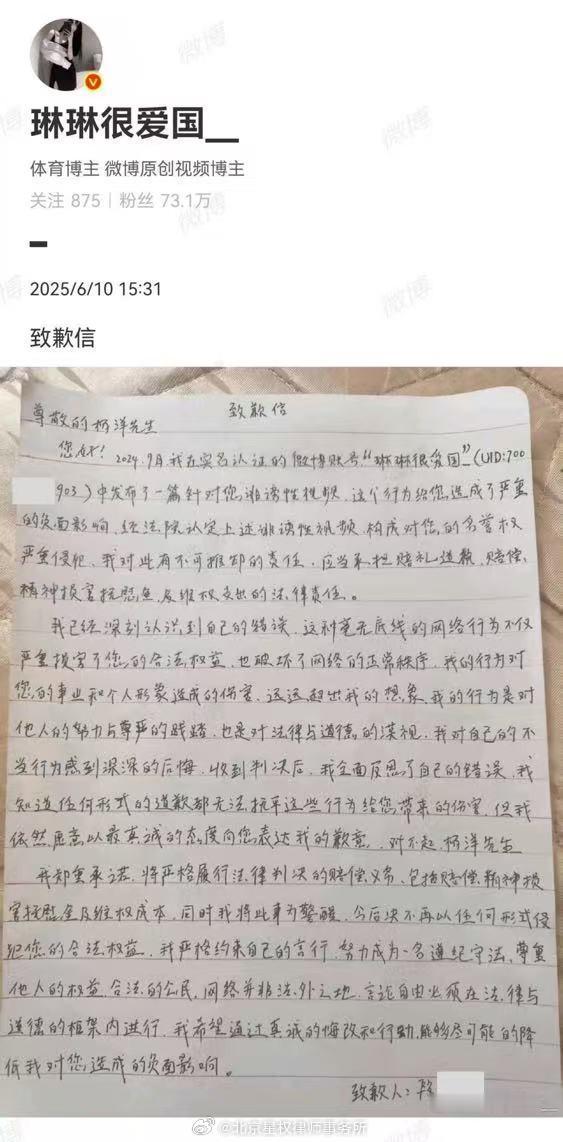 琳琳很爱国__
体育博主 微博原创视频博主
关注 875｜粉丝 73.1万
2025/6/10 15:31
致歉信
致歉信
尊敬的杨洋先生
您好！2024.9月我在实名认证的微博账号“琳琳很爱国_”(UID:700
903)中发布了一篇针对您诽谤性视频，这个行为给您造成了严重
的负面影响，经法院认定上述诽谤性视频，构成对您的名誉权
严重侵犯，我对此有不可推卸的责任，应当承担赔礼道歉，赔偿，
精神损害抚慰金，及维权支出的法律责任。
我已经深刻认识到自己的错误，这种毫无底线的网络行为不仅
严重损害了您的合法权益，也破坏了网络的正常秩序，我的行为对
您的事业和个人形象造成的伤害，远远超出我的想象，我的行为是对
他人的努力与尊严的践踏，也是对法律与道德的漠视，我对自己的不
当行为感到深深的后悔，收到判决后，我全面反思了自己的错误，我
知道任何形式的道歉都无法抚平这些行为给您带来的伤害，但我
依然愿意以最真诚的态度向您表达我的歉意，对不起杨洋先生
我郑重承诺，将严格履行法律判决的赔偿义务，包括赔偿，精神损
害抚慰金及维权成本，同时我将此事为警醒，今后决不再以任何形式侵
犯您的合法权益，我严格约束自己的言行，努力成为一名遵纪守法，尊重
他人的权益，合法的公民，网络并非法外之地，言论自由必须在法律与
道德的框架内进行，我希望通过真诚的悔改和行动，能够尽可能的降
低我对您造成的负面影响。
致歉人：
@北京星权律师事务所
微博
微博
微博
微博